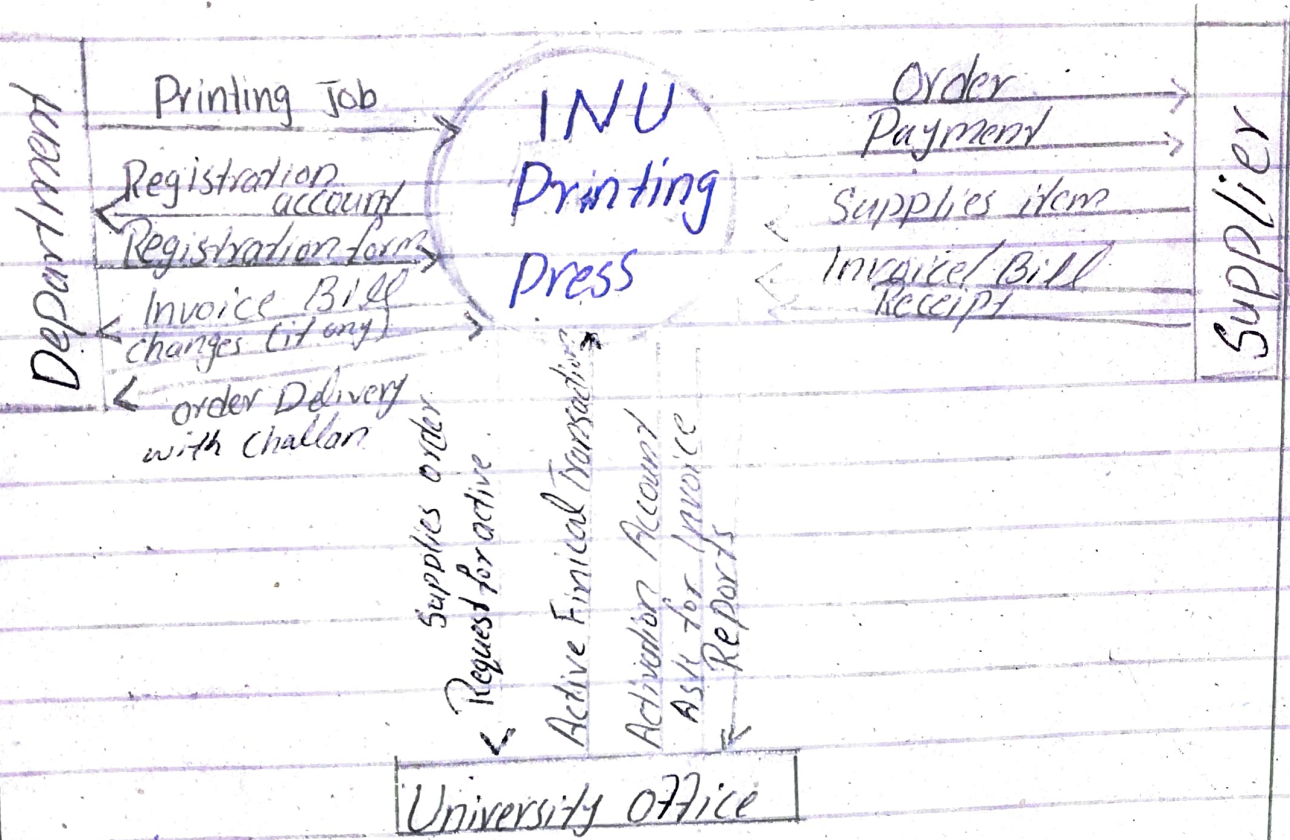 Department
Printing Job
Registration
account
Registration form
Invoice Bill
changes (if any)
order Delivery
with challan
INU
Printing
Press
Order
Payment
Supplies item
Invoice/Bill
Receipt
Supplier
Supplies order
Request for active
Active Finical Transaction
Activation Account
Ask for Invoice
Reports
University office